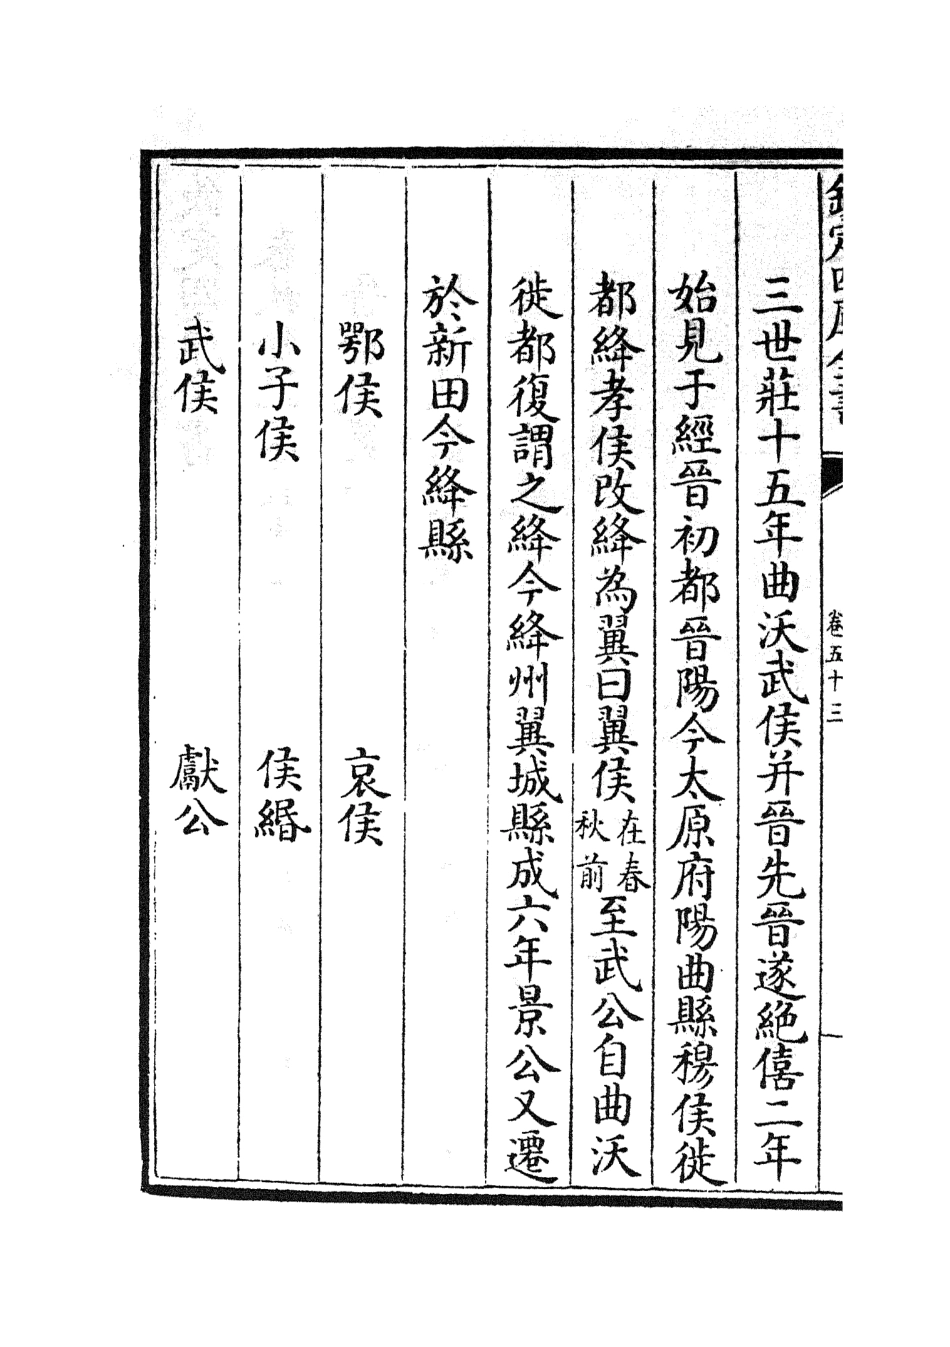 欽定四庫全書
卷五十三
三世莊十五年曲沃武侯并晉先晉遂絕僖二年
始見于經晉初都晉陽今太原府陽曲縣穆侯徙
都絳孝侯改絳為翼曰翼侯在春秋前至武公自曲沃
徙都復謂之絳今絳州翼城縣成六年景公又遷
於新田今絳縣
鄂侯 哀侯
小子侯 侯緡
武侯 獻公